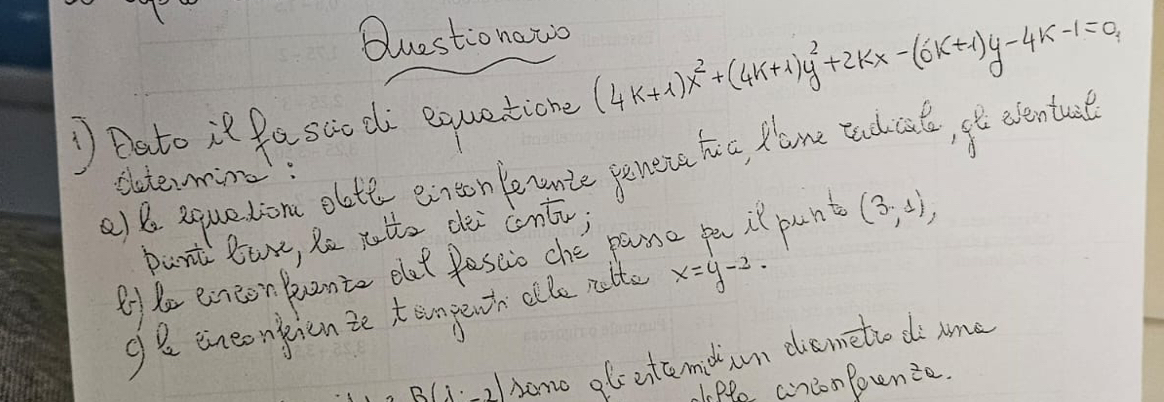 Questionario
1) Dato il fascio di equazione (4K+1)x²+(4K+1)y²+2Kx-(6K+1)y-4K-1=0,
determina:
a) le equazioni delle circonferenze generatrici, l'asse radicale, gli eventuali
punti base, la retta dei centri;
b) la circonferenza del fascio che passa per il punto (3;1),
c) le circonferenze tangenti alla retta x=y-2.
B(1;-2) sono gli estremi di un diametro di una
della circonferenza.